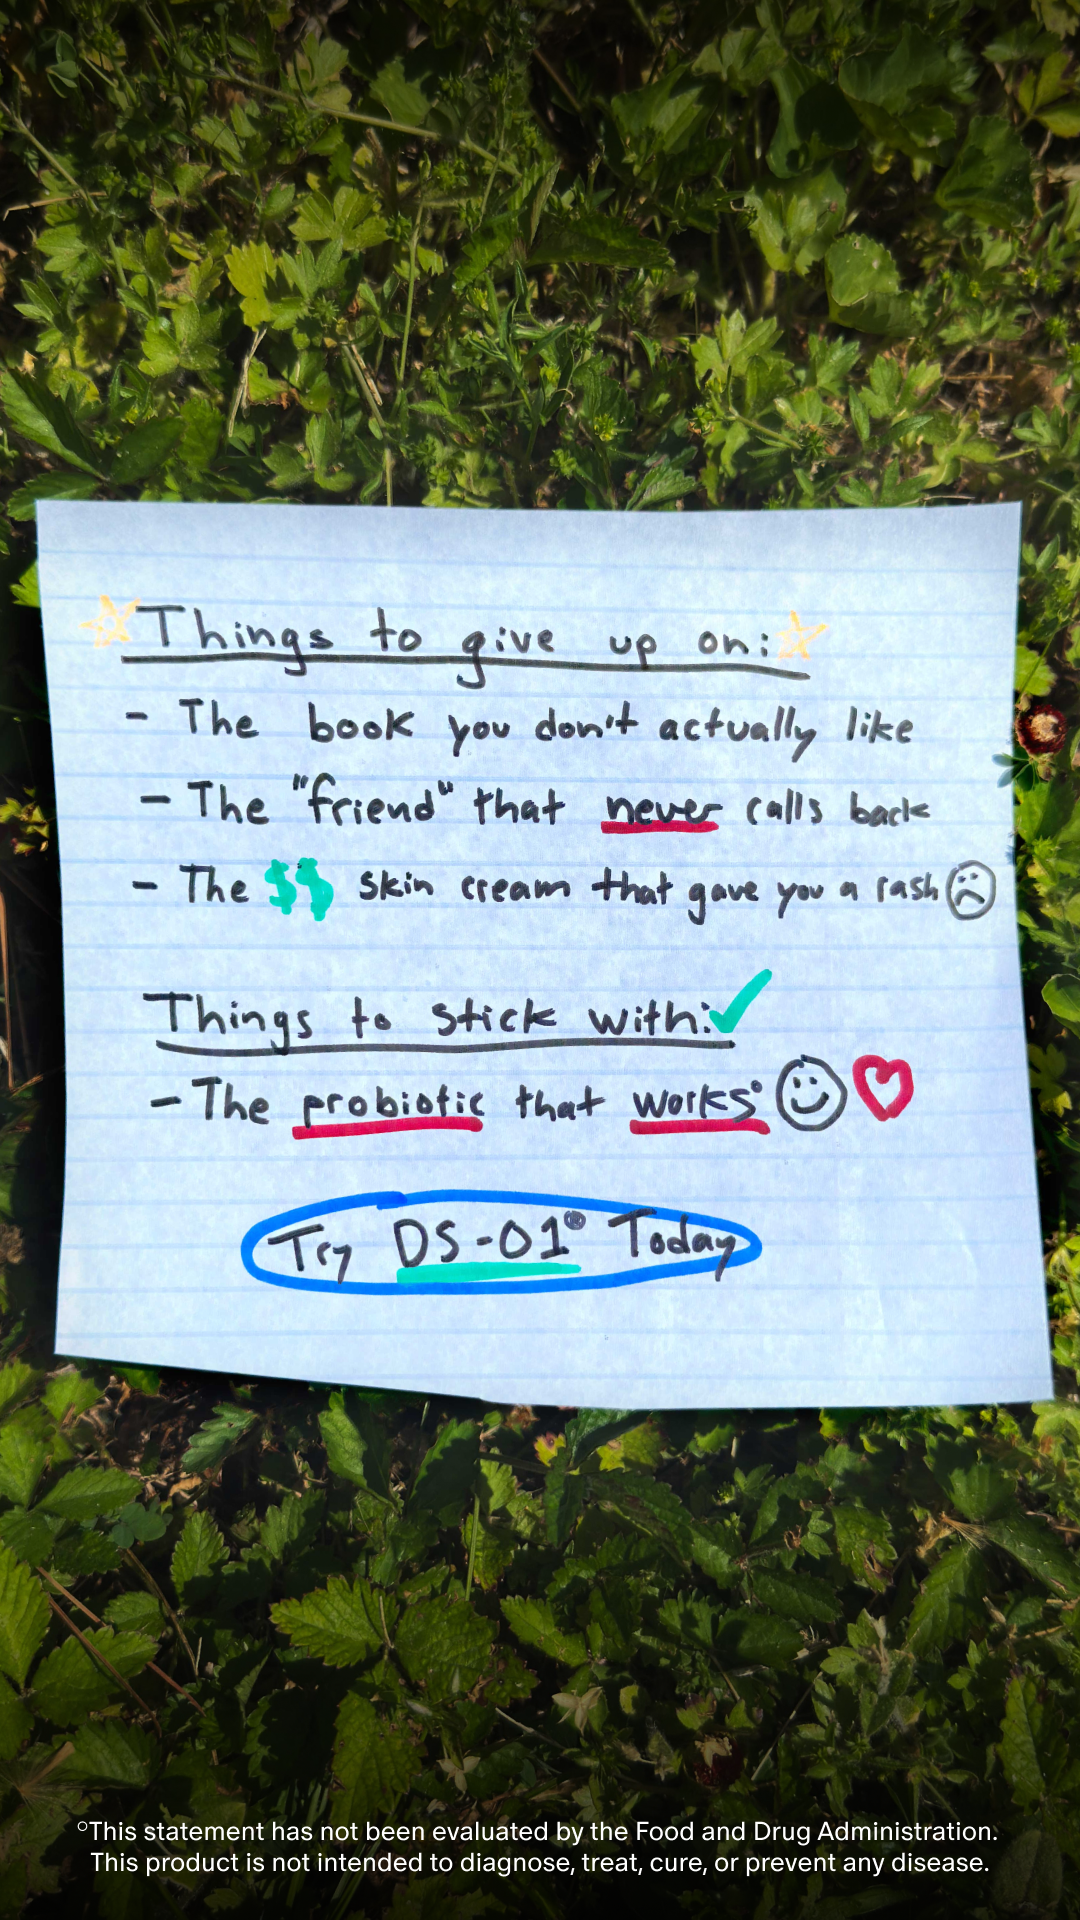 Things to give up on:
- The book you don't actually like
- The "friend" that never calls back
- The $$ skin cream that gave you a rash
Things to stick with:
- The probiotic that works°
Try DS-01® Today
°This statement has not been evaluated by the Food and Drug Administration.
This product is not intended to diagnose, treat, cure, or prevent any disease.